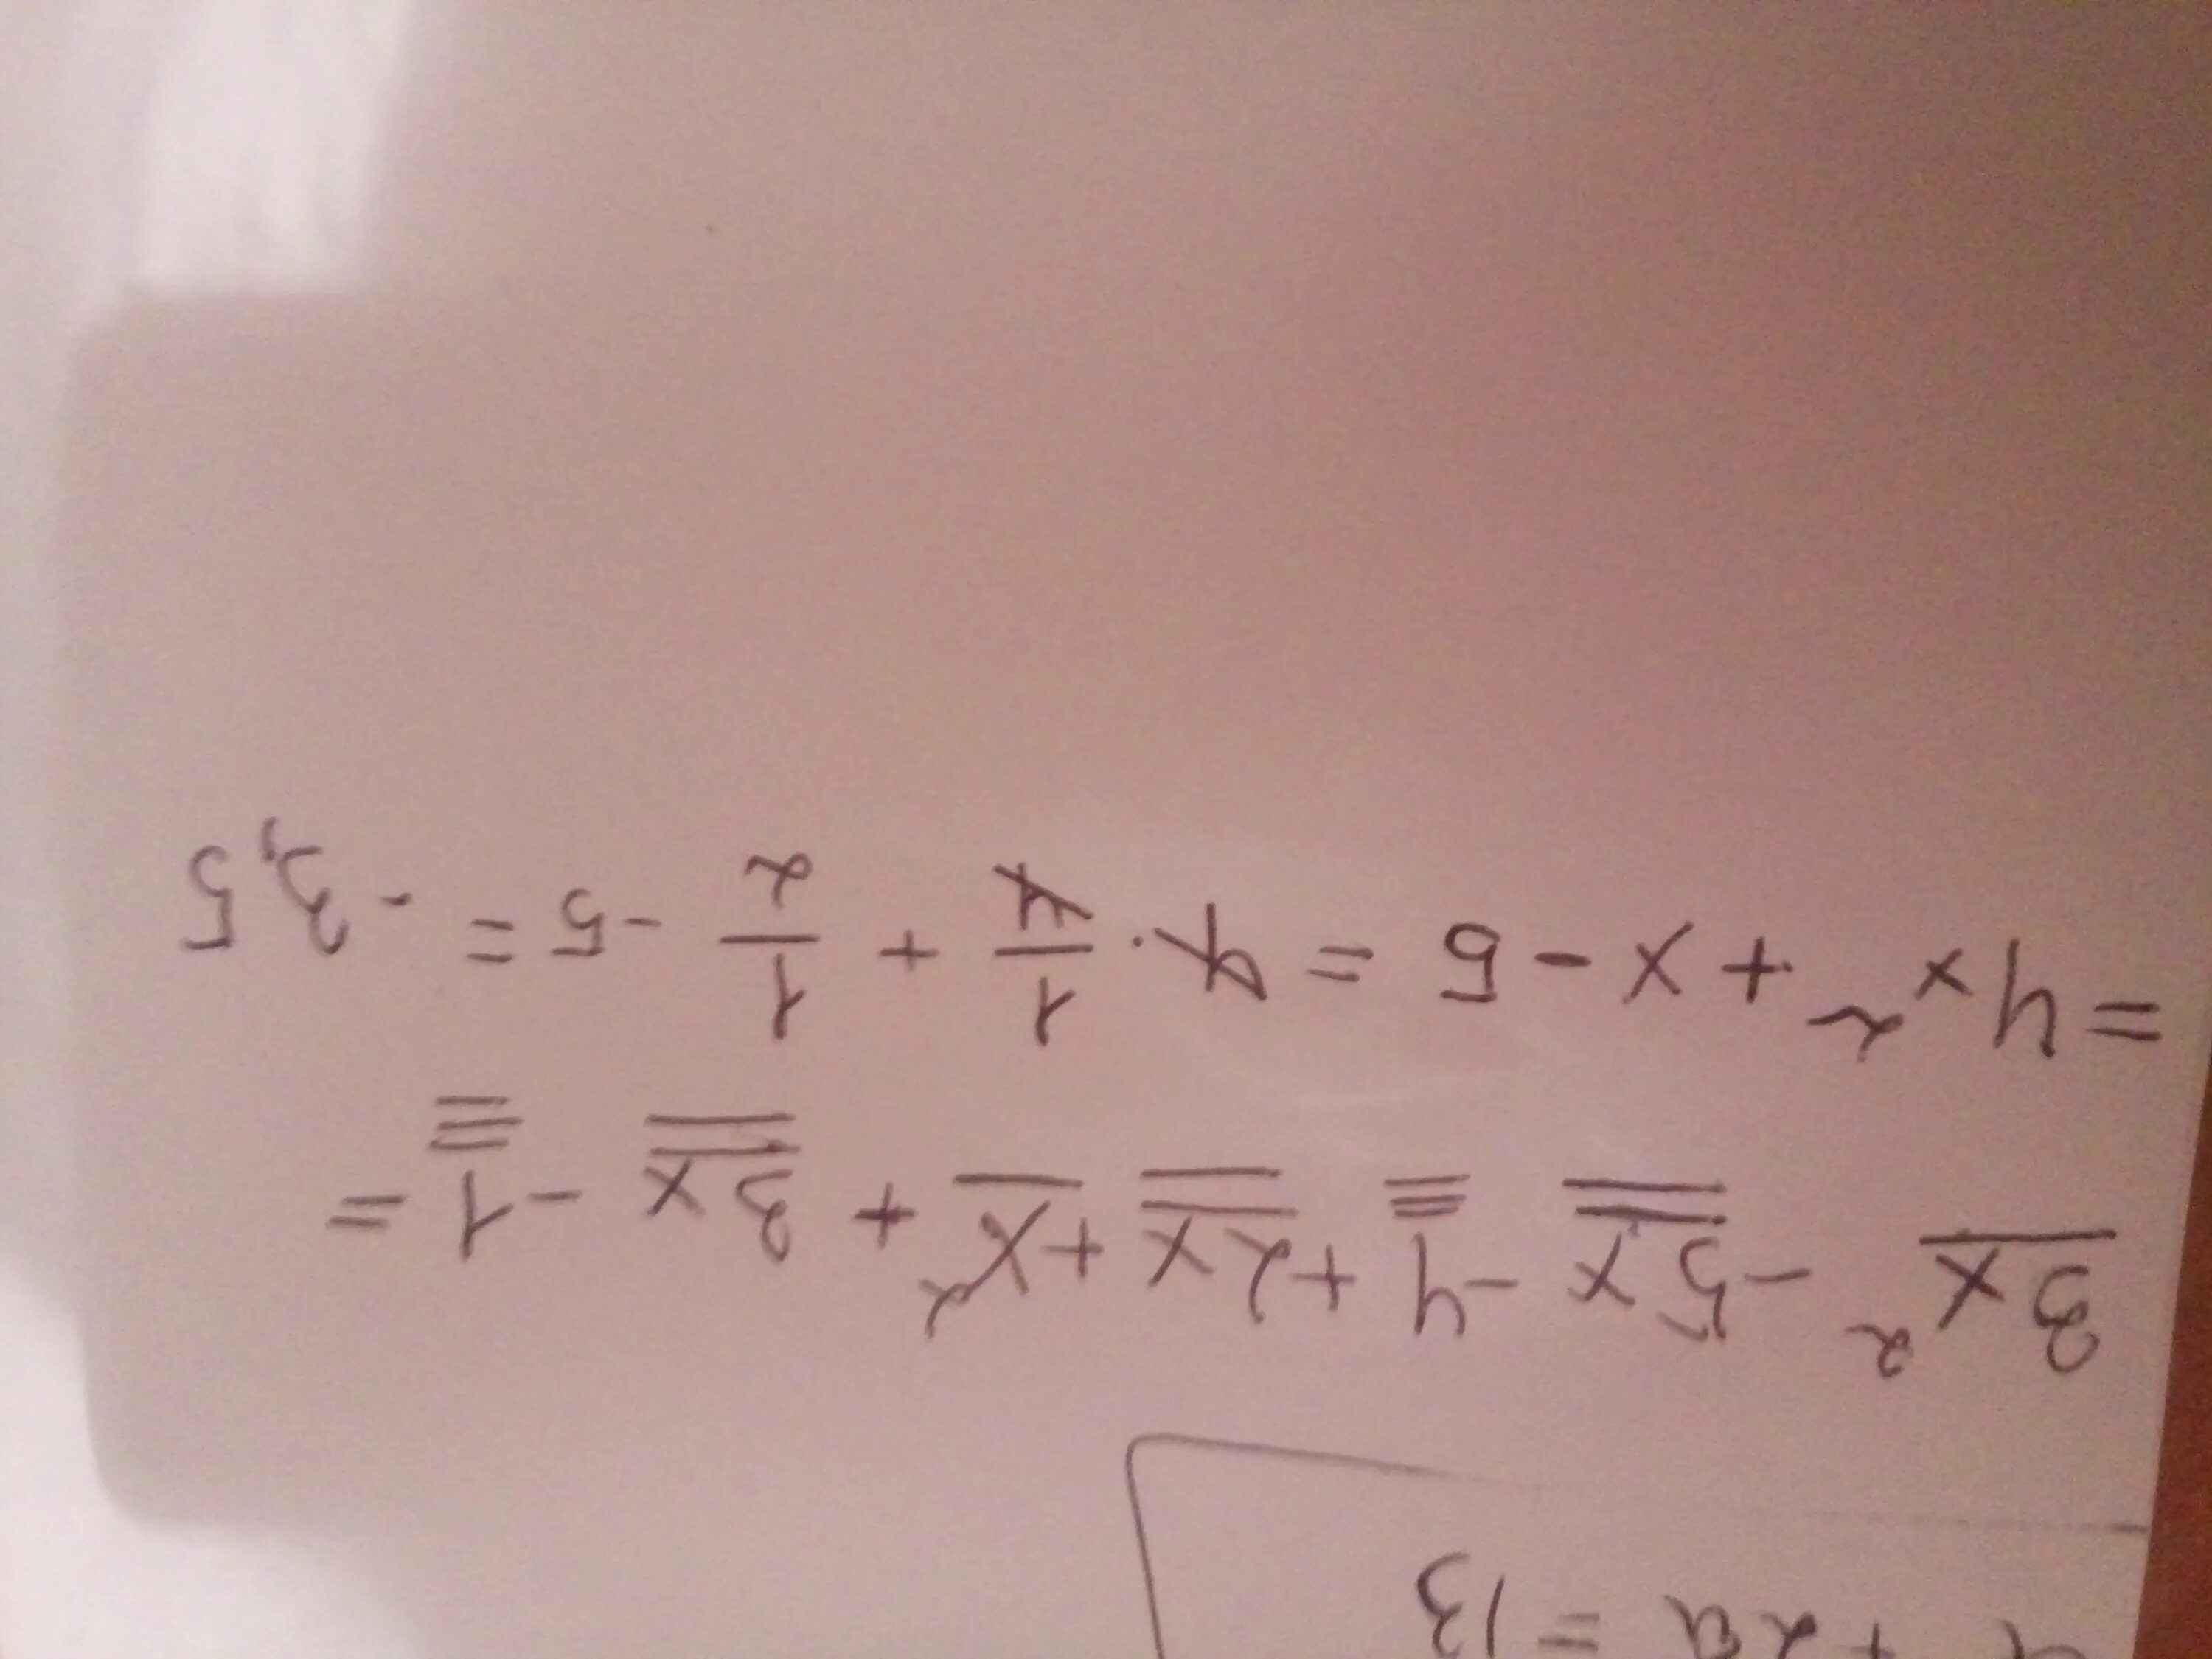 + 2a = 13
3x² - 5x - 4 + 2x + x² + 3x - 1 =
= 4x² + x - 5 = 4 · 1/4 + 1/2 - 5 = - 3,5